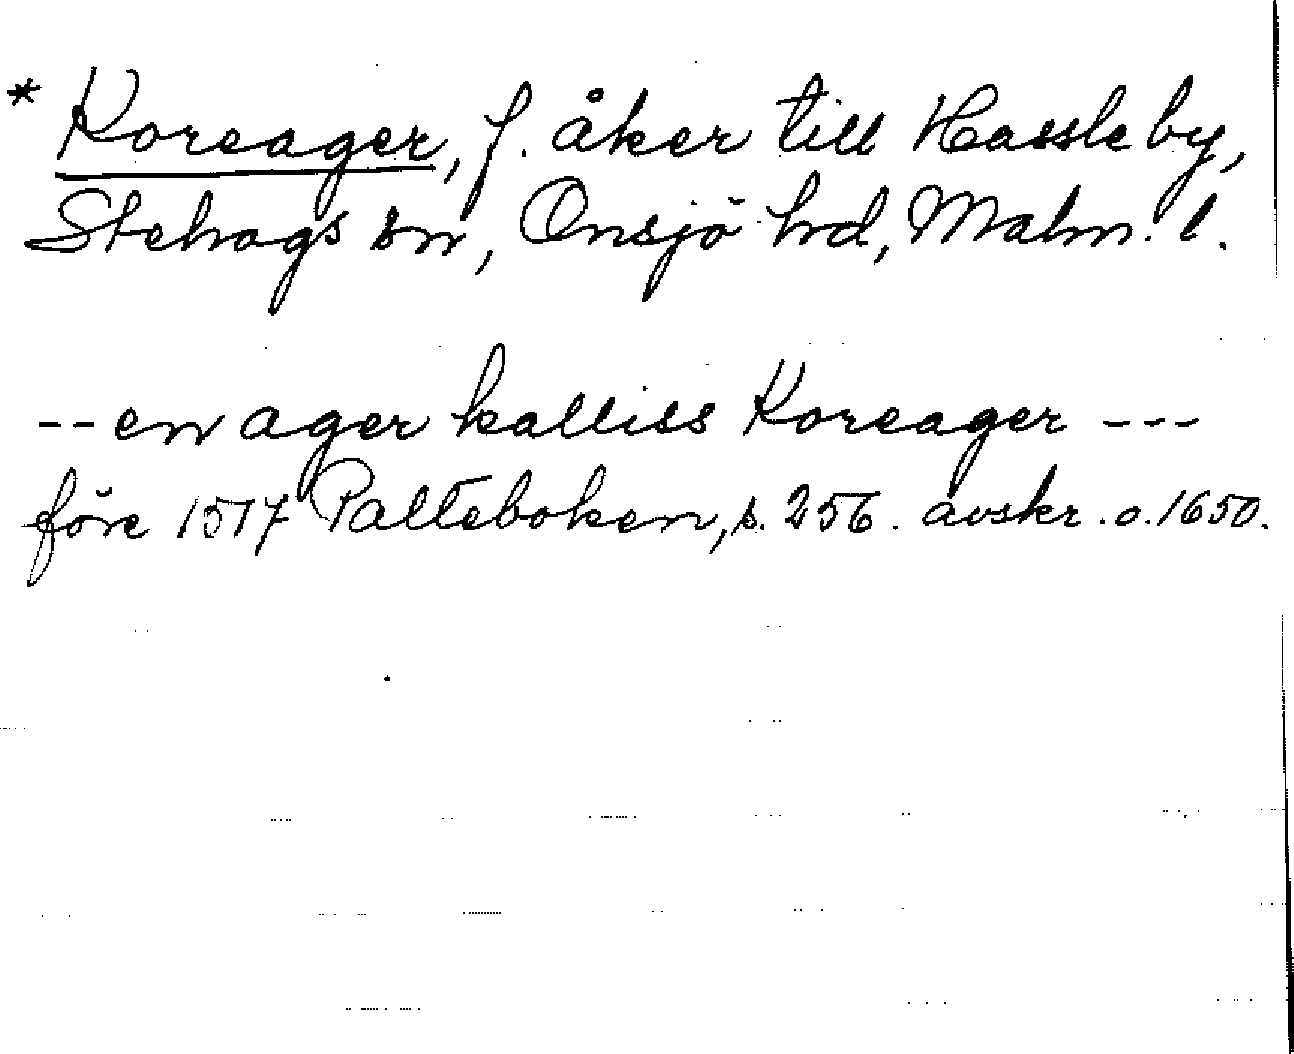 * Koreager, f. åker till Hassle by,
Stehags sn, Onsjö hrd, Malm. l.
-- en ager kalliss Koreager ---
före 1517 Palteboken, s. 256. avskr. o. 1650.